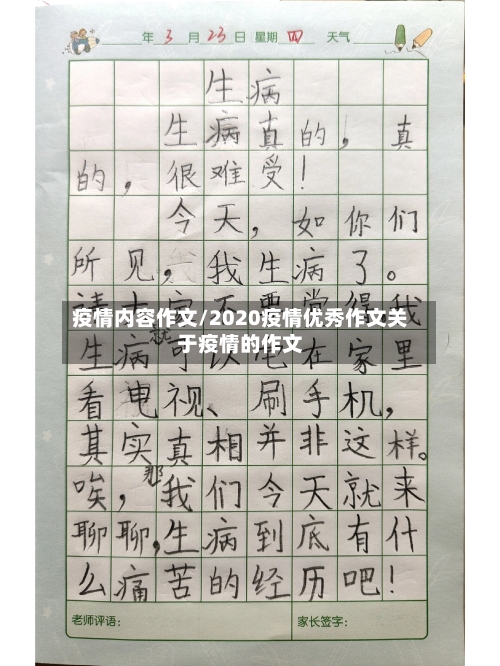 年3月23日 星期四 天气
生病
生病真的，真
的，很难受！
今天，如你们
所见，我生病了。
疫情内容作文/2020疫情优秀作文关
于疫情的作文
请大家不要觉得我
生病就可以宅在家里
看电视、刷手机，
其实真相并非这样。
唉，那我们今天就来
聊聊，生病到底有什
么痛苦的经历吧！
老师评语： 家长签字：